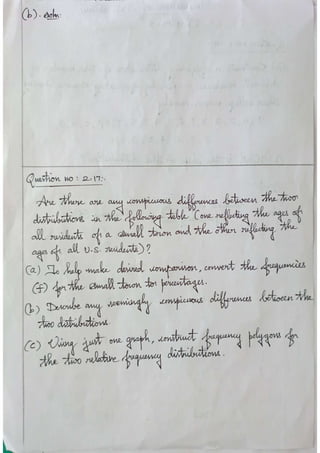 (b). soln:
Question no : 2.17:.
Are there are any conspicuous differences between the two
distributions in the following table (one reflecting the ages of
all residents of a small town and the other reflecting the
ages of all U.S. residents)?
(a) To help make desired comparison, convert the frequencies
(f) for the small town to percentages.
(b) Describe any seemingly conspicuous differences between the
two distributions.
(c) Using just one graph, construct frequency polygons for
the two relative frequency distributions.